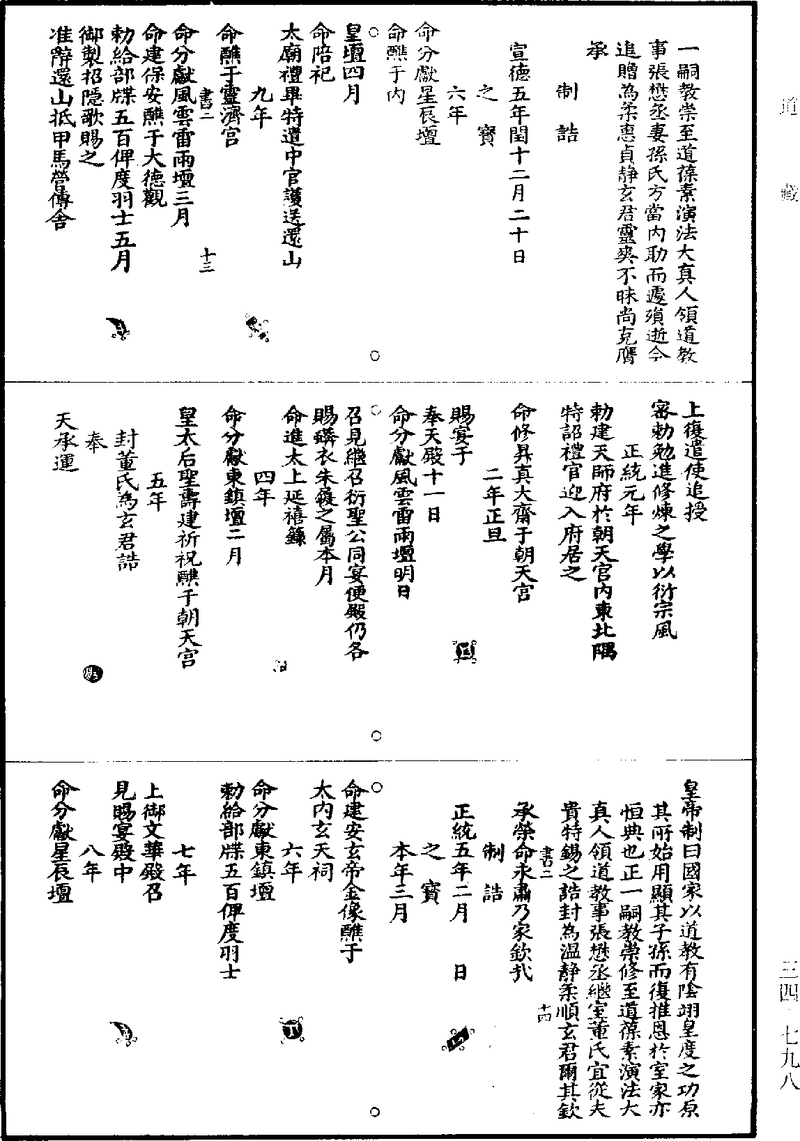 道藏
一嗣教崇至道葆素演法大真人領道教
事張懋丞妻孫氏方當內助而遽殞逝今
追贈為柔惠貞静玄君靈爽不昧尚克膺
承
制誥
宣德五年閏十二月二十日
之寶
六年
命分獻星辰壇
命醮于內
皇壇四月
命陪祀
太廟禮畢特遣中官護送還山
九年
命醮于靈濟宮
書二
十三
命分獻風雲雷雨壇三月
命建保安醮于大德觀
勑給部牒五百俾度羽士五月
御製招隱歌賜之
准辭還山抵甲馬營傳舍
上復遣使追授
密勑勉進修煉之學以衍宗風
正統元年
勑建天師府於朝天宮內東北隅
特詔禮官迎入府居之
命修昇真大齋于朝天宮
二年正旦
賜宴于
奉天殿十一日
命分獻風雲雷雨壇明日
召見繼召衍聖公同宴便殿仍各
賜鏹衣朱履之屬本月
命進太上延禧籙
四年
命分獻東鎮壇二月
皇太后聖壽建祈祝醮于朝天宮
五年
封董氏為玄君誥
奉
天承運
皇帝制曰國家以道教有陰翊皇度之功原
其所始用顯其子孫而復推恩於室家亦
恒典也正一嗣教崇修至道葆素演法大
真人領道教事張懋丞繼室董氏宜從夫
貴特錫之誥封為温静柔順玄君爾其欽
書二
十四
承榮命永肅乃家欽哉
制誥
正統五年二月 日
之寶
本年三月
命建安玄帝金像醮于
太內玄天祠
六年
命分獻東鎮壇
勑給部牒五百俾度羽士
七年
上御文華殿召
見賜宴殿中
八年
命分獻星辰壇
三四·七九八